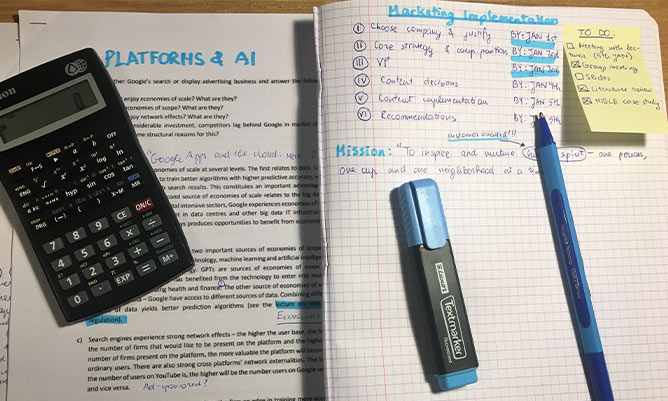 PLATFORMS & AI
Google's search or display advertising business and answer the
enjoy economies of scale? What are they?
economies of scope? What are they?
enjoy network effects? What are they?
considerable investment, competitors lag behind Google in market
structural reasons for this?
"Google Apps and the cloud.
economies of scale at several levels. The first relates to
to train better algorithms with higher predictive accuracy,
search results. This constitutes an important
second source of economies of scale relates to the
tal intensive sectors, Google experiences economies of
in data centres and other big data IT
produces opportunities to benefit from
two important sources of economies of scope
technology, machine learning and artificial
GPTs are sources of economies of scope
benefited from the technology to enter into
including health and finance. The other source of economies of
– Google have access to different sources of data. Combining
of data yields better prediction algorithms (see the lecture on
regulation).
c) Search engines experience strong network effects – the higher the user base, the
the number of firms that would like to be present on the platform and the higher
number of firms present on the platform, the more valuable the platform will
ordinary users. There are also strong cross platforms' network externalities. The
the number of users on YouTube is, the higher will be the number users on Google
and vice versa. Ad-sponsored?
Canon
OFF
hyp sin cos tan
DRG
X→M
MR
7 8 9 CE ON/C
4 5 6 × ÷
1 2 3 + −
0 . EXP = M+
Marketing Implementation
I Choose company & justify BY: JAN 1st
II Core strategy & comp. position BY: JAN 3rd
III VP BY: JAN 3rd
IV Content decisions BY: JAN 4th
V Content implementation BY: JAN 5th
VI Recommendations BY: JAN 5th
customer oriented!!!
Mission: "To inspire and nurture human spirit – one person,
one cup and one neighborhood at a time
TO DO:
Meeting with lec-
turer (5th JAN)
Group meeting
Slides
Literature review
MGLE case study
Textmarker